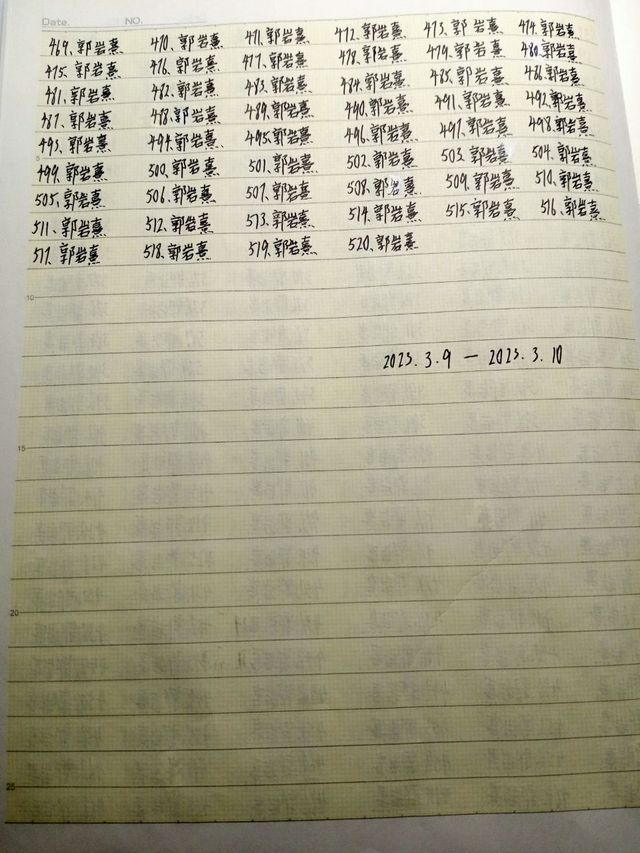 Date. NO.
469、郭岩熹 470、郭岩熹 471、郭岩熹 472、郭岩熹 473、郭岩熹 474、郭岩熹
475、郭岩熹 476、郭岩熹 477、郭岩熹 478、郭岩熹 479、郭岩熹 480、郭岩熹
481、郭岩熹 482、郭岩熹 483、郭岩熹 484、郭岩熹 485、郭岩熹 486、郭岩熹
487、郭岩熹 488、郭岩熹 489、郭岩熹 490、郭岩熹 491、郭岩熹 492、郭岩熹
493、郭岩熹 494、郭岩熹 495、郭岩熹 496、郭岩熹 497、郭岩熹 498、郭岩熹
5
499、郭岩熹 500、郭岩熹 501、郭岩熹 502、郭岩熹 503、郭岩熹 504、郭岩熹
505、郭岩熹 506、郭岩熹 507、郭岩熹 508、郭岩熹 509、郭岩熹 510、郭岩熹
511、郭岩熹 512、郭岩熹 513、郭岩熹 514、郭岩熹 515、郭岩熹 516、郭岩熹
517、郭岩熹 518、郭岩熹 519、郭岩熹 520、郭岩熹
10
2023.3.9 — 2023.3.10
15
20
25